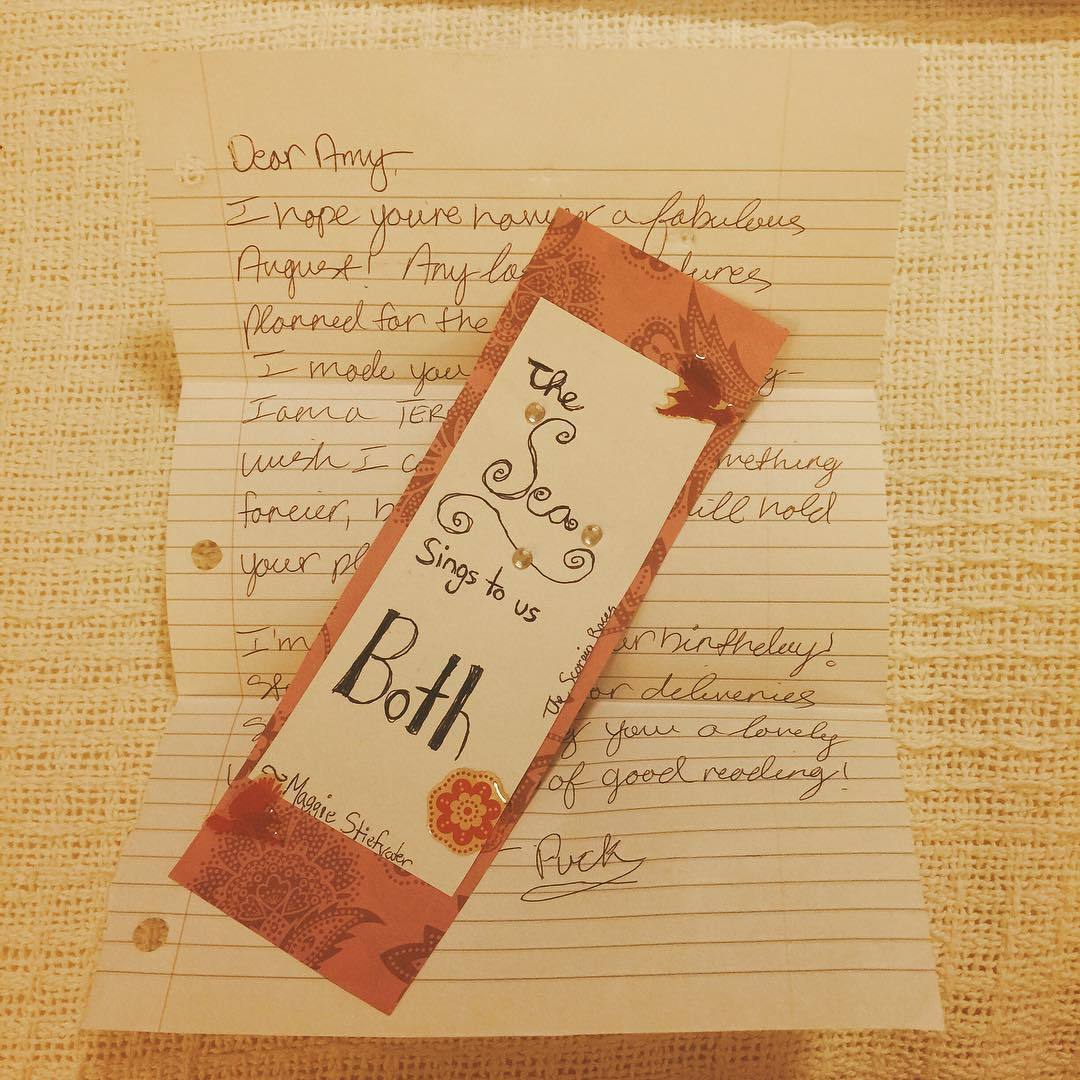 Dear Amy,
I hope you're having a fabulous
August! Any
planned for the
I made you
I am a TER
wish I c mething
forever, b ill hold
your pl
I'm ur birthday!
St or deliveries
S g you a lovely
of good reading!
- Puck
The
Sea
Sings to us
Both
The Scorpio Races
~Maggie Stiefvater